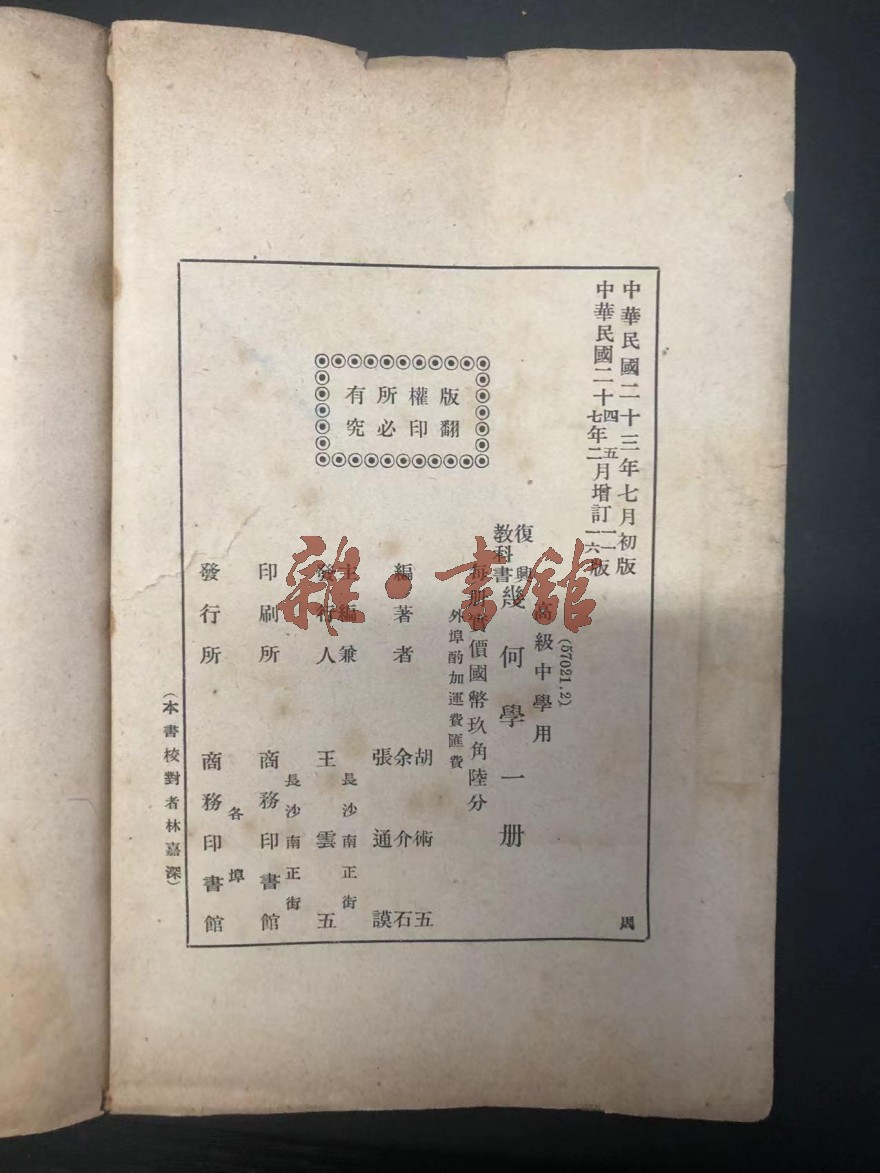 中華民國二十三年七月初版
中華民國二十四年五月增訂一一版
七 二 一六
(57021.2)
高級中學用
復興教科書 幾何學一册
每册實價國幣玖角陸分
外埠酌加運費匯費
版權所有
翻印必究
編著者 胡術五
余介石
張通謨
主編兼發行人 王雲五
長沙南正街
印刷所 商務印書館
長沙南正街
發行所 商務印書館
各埠
(本書校對者林嘉深)
雜·書館